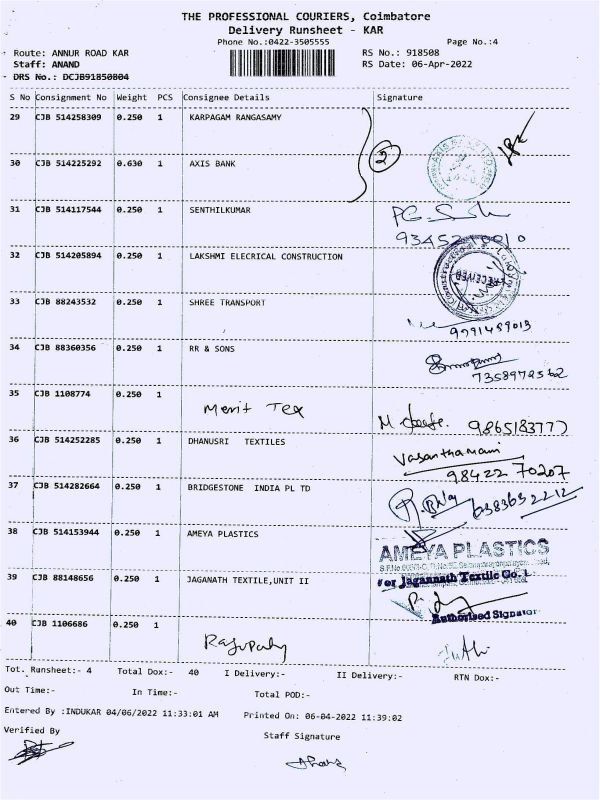 THE PROFESSIONAL COURIERS, Coimbatore
Delivery Runsheet - KAR
Phone No.:0422-3505555
Page No.:4
Route: ANNUR ROAD KAR
RS No.: 918508
Staff: ANAND
RS Date: 06-Apr-2022
DRS No.: DCJB91850804
S No Consignment No Weight PCS Consignee Details Signature
29 CJB 514258309 0.250 1 KARPAGAM RANGASAMY
2
30 CJB 514225292 0.630 1 AXIS BANK
31 CJB 514117544 0.250 1 SENTHILKUMAR
32 CJB 514205894 0.250 1 LAKSHMI ELECRICAL CONSTRUCTION
RECEIVED
33 CJB 88243532 0.250 1 SHREE TRANSPORT
34 CJB 88360356 0.250 1 RR & SONS
35 CJB 1108774 0.250 1
Merit Tex
9865183777
36 CJB 514252285 0.250 1 DHANUSRI TEXTILES
Vasanthamani
98422 70207
37 CJB 514282664 0.250 1 BRIDGESTONE INDIA PL TD
6383632212
38 CJB 514153944 0.250 1 AMEYA PLASTICS
AMEYA PLASTICS
39 CJB 88148656 0.250 1 JAGANATH TEXTILE,UNIT II
For Jagannath Textile Co.
Authorised Signator
40 CJB 1106686 0.250 1
Tot. Runsheet:- 4 Total Dox:- 40 I Delivery:- II Delivery:- RTN Dox:-
Out Time:- In Time:- Total POD:-
Entered By :INDUKAR 04/06/2022 11:33:01 AM Printed On: 06-04-2022 11:39:02
Verified By
Staff Signature